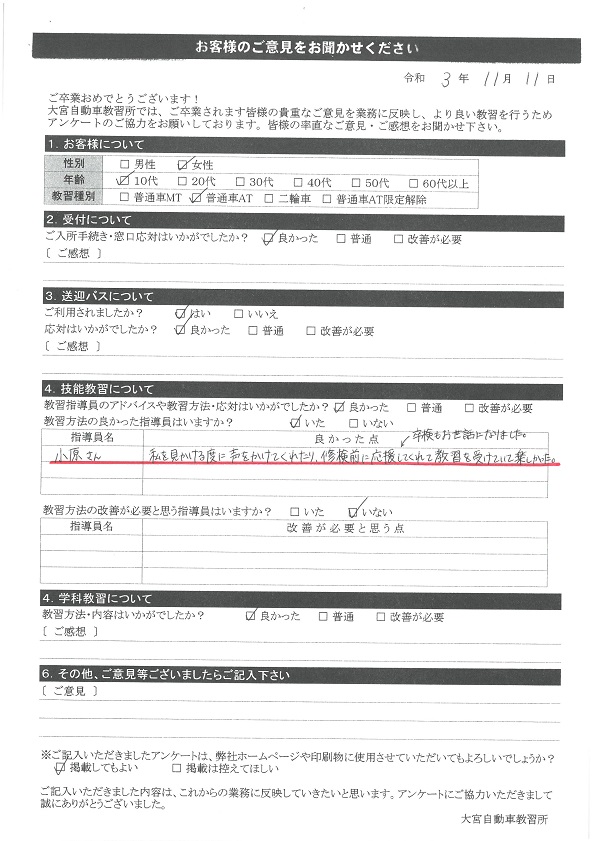 お客様のご意見をお聞かせください
令和 3 年 11 月 11 日
ご卒業おめでとうございます！
大宮自動車教習所では、ご卒業されます皆様の貴重なご意見を業務に反映し、より良い教習を行うため
アンケートのご協力をお願いしております。皆様の率直なご意見・ご感想をお聞かせ下さい。
1. お客様について
性別 □ 男性 ☑ 女性
年齢 ☑ 10代 □ 20代 □ 30代 □ 40代 □ 50代 □ 60代以上
教習種別 □ 普通車MT ☑ 普通車AT □ 二輪車 □ 普通車AT限定解除
2. 受付について
ご入所手続き・窓口応対はいかがでしたか？ ☑ 良かった □ 普通 □ 改善が必要
〔 ご感想 〕
3. 送迎バスについて
ご利用されましたか？ ☑ はい □ いいえ
応対はいかがでしたか？ ☑ 良かった □ 普通 □ 改善が必要
〔 ご感想 〕
4. 技能教習について
教習指導員のアドバイスや教習方法・応対はいかがでしたか？ ☑ 良かった □ 普通 □ 改善が必要
教習方法の良かった指導員はいますか？ ☑ いた □ いない
指導員名 良かった点 卒検もお世話になりました。
小原さん 私を見かける度に声をかけてくれたり、修検前に応援してくれて教習を受けていて楽しかった。
教習方法の改善が必要と思う指導員はいますか？ □ いた ☑ いない
指導員名 改善が必要と思う点
4. 学科教習について
教習方法・内容はいかがでしたか？ ☑ 良かった □ 普通 □ 改善が必要
〔 ご感想 〕
6. その他、ご意見等ございましたらご記入下さい
〔 ご意見 〕
※ご記入いただきましたアンケートは、弊社ホームページや印刷物に使用させていただいてもよろしいでしょうか？
☑ 掲載してもよい □ 掲載は控えてほしい
ご記入いただきました内容は、これからの業務に反映していきたいと思います。アンケートにご協力いただきまして
誠にありがとうございました。
大宮自動車教習所